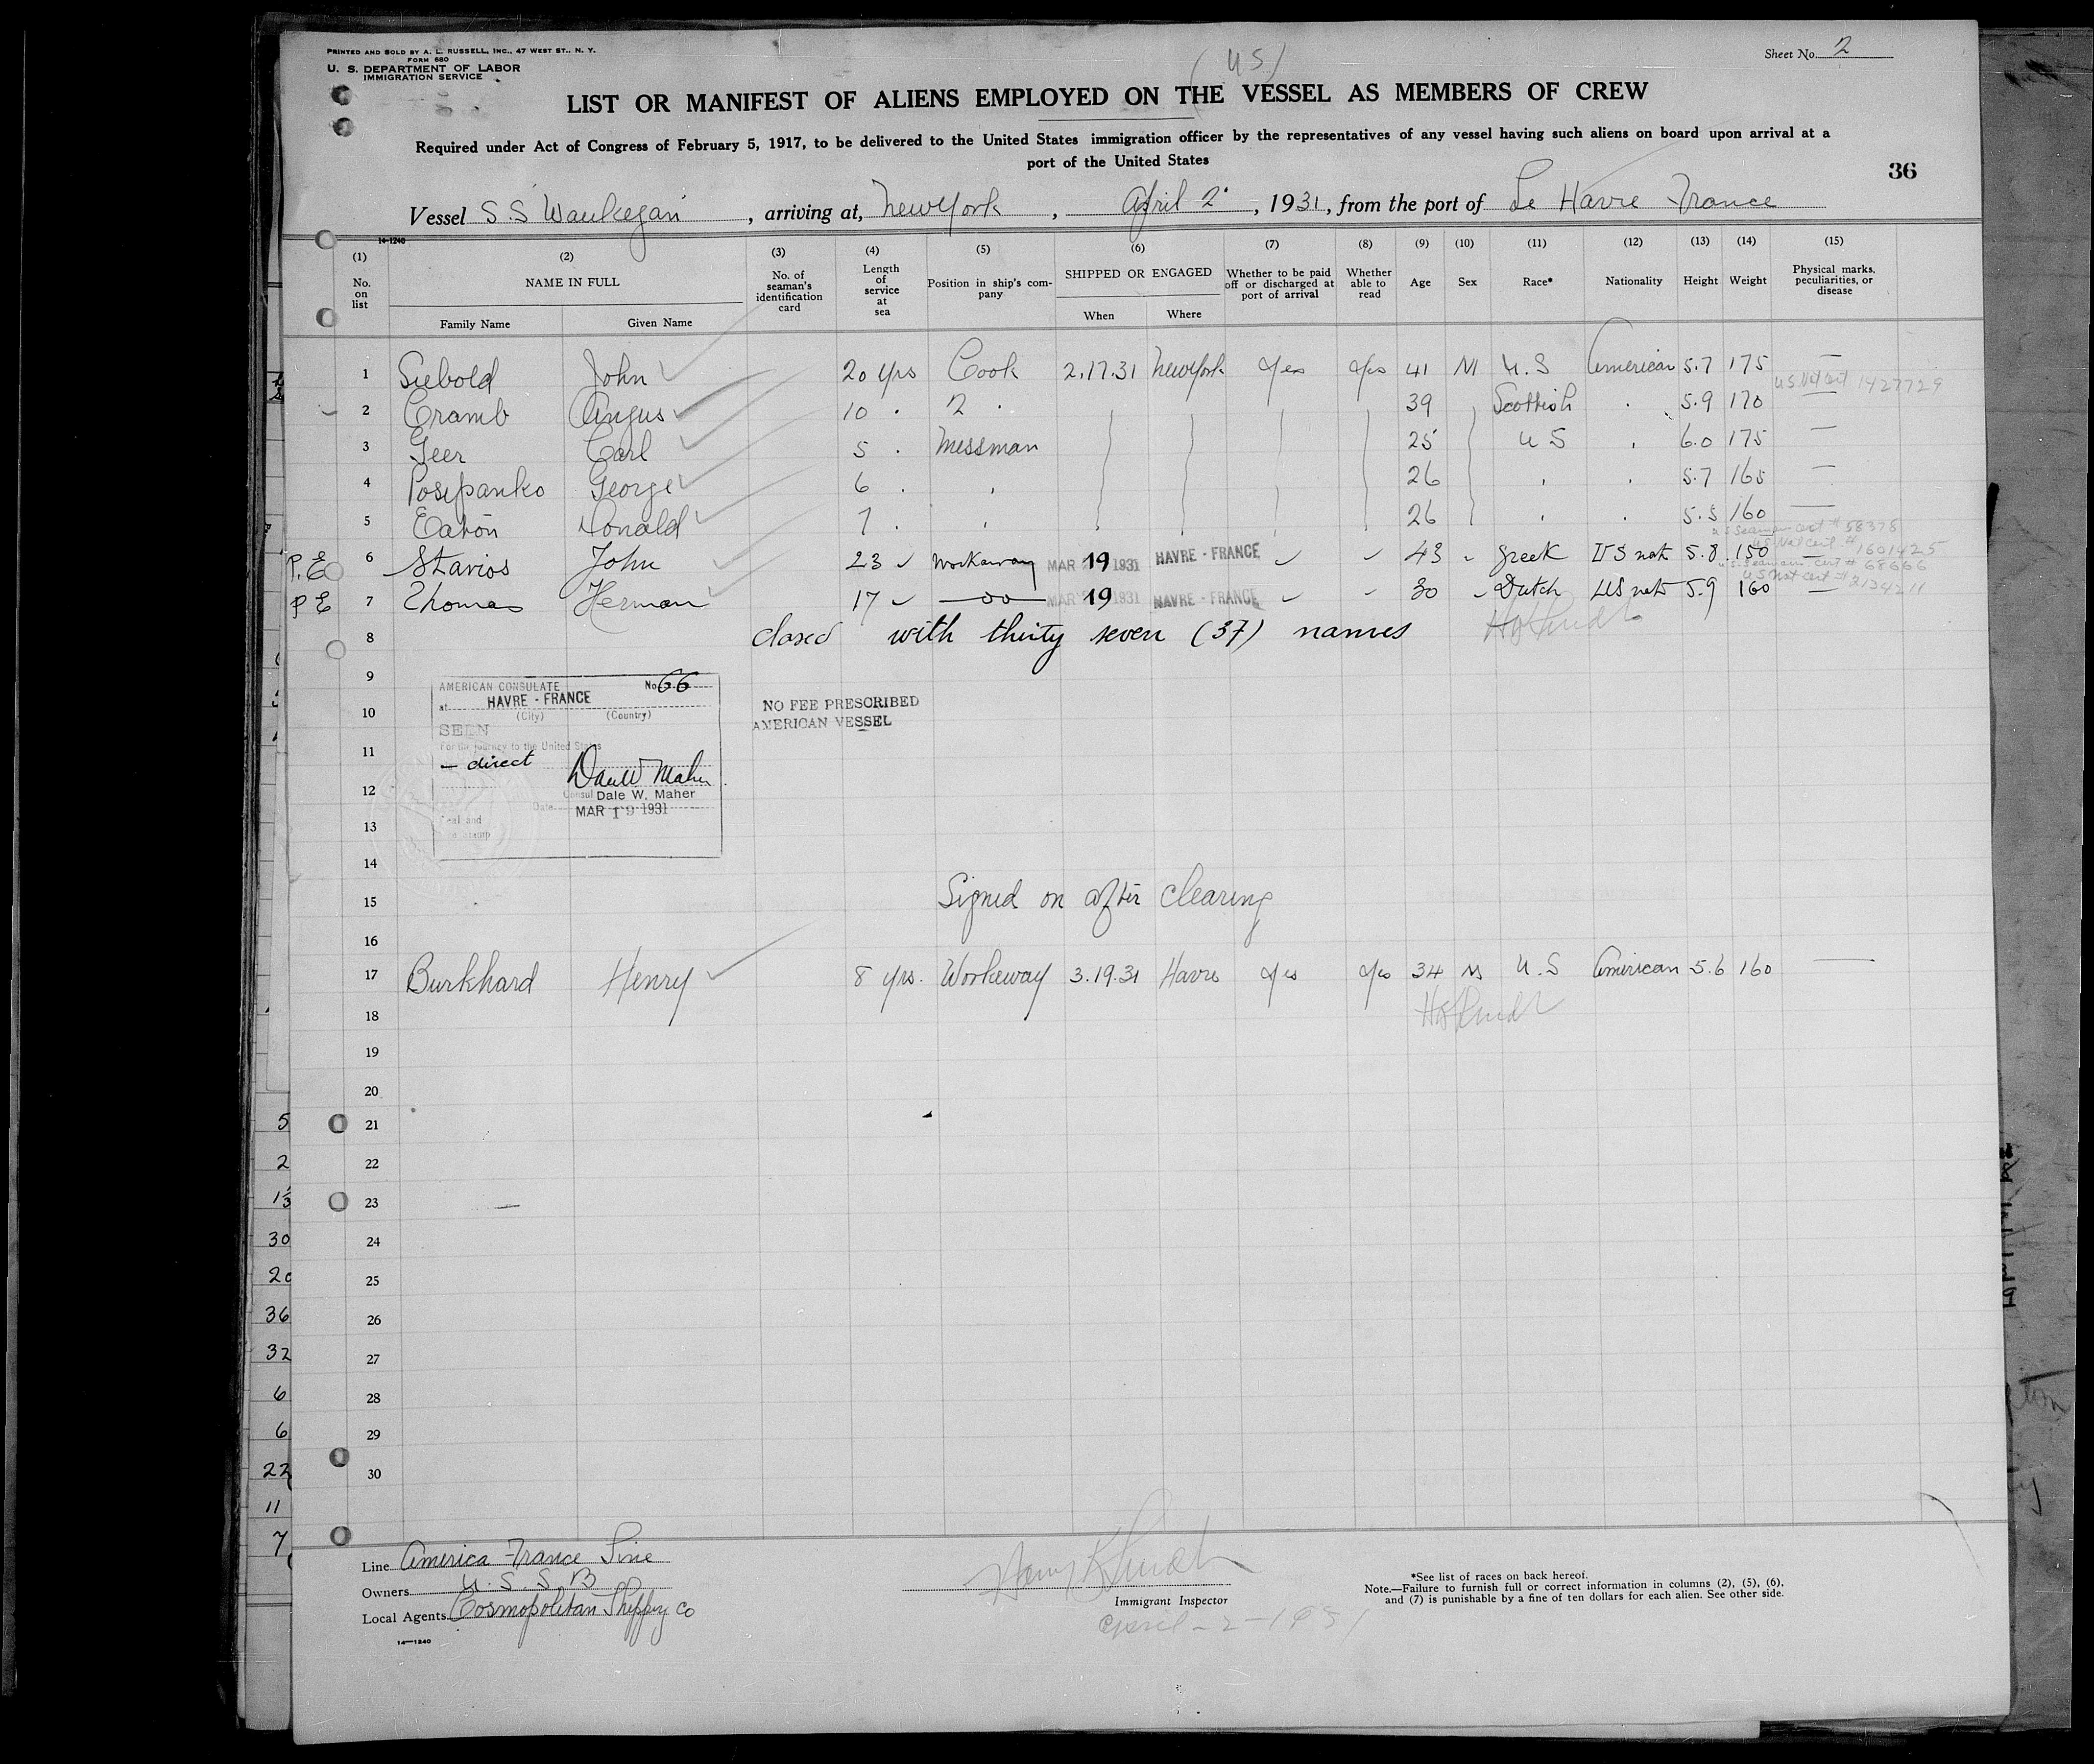 PRINTED AND SOLD BY A. L. RUSSELL, INC., 47 WEST ST., N. Y.
FORM 680
U. S. DEPARTMENT OF LABOR
IMMIGRATION SERVICE
(US)
Sheet No. 2
LIST OR MANIFEST OF ALIENS EMPLOYED ON THE VESSEL AS MEMBERS OF CREW
Required under Act of Congress of February 5, 1917, to be delivered to the United States immigration officer by the representatives of any vessel having such aliens on board upon arrival at a
port of the United States
36
Vessel S.S Waukegan, arriving at, New York, April 2, 1931, from the port of Le Havre France
14-1240
(1) (2) (3) (4) (5) (6) (7) (8) (9) (10) (11) (12) (13) (14) (15)
No. on list
NAME IN FULL
Family Name Given Name
No. of seaman's identification card
Length of service at sea
Position in ship's company
SHIPPED OR ENGAGED
When Where
Whether to be paid off or discharged at port of arrival
Whether able to read
Age Sex Race* Nationality Height Weight
Physical marks, peculiarities, or disease
1 Siebold John 20 yrs Cook 2.17.31 New York Yes Yes 41 M U.S American 5.7 175 —
US Nat Cert 1427729
2 Cramb Angus 10 . 2 . 39 Scottish . 5.9 170 —
3 Geer Carl 5 . Messman 25 U S . 6.0 175 —
4 Posipanko George 6 . . 26 . . 5.7 165 —
5 Eaton Donald 7 . . 26 . . 5.5 160 —
US Seaman cert # 58378
US Nat Cert # 1601425
P.E 6 Stavios John 23 ✓ Workaway MAR 19 1931 HAVRE - FRANCE ✓ ✓ 43 Greek US nat 5.8 150 —
US Seamans Cert # 68666
US Nat Cert # 2134211
P E 7 Thomas Herman 17 ✓ —do— MAR 19 1931 HAVRE - FRANCE ✓ 30 Dutch US nat 5.9 160 —
8 closed with thirty seven (37) names
9
10
11
12
13
14
AMERICAN CONSULATE No. 66
at HAVRE - FRANCE
(City) (Country)
SEEN
For the journey to the United States
— direct
Dale W. Maher
Consul Dale W. Maher
Date MAR 19 1931
Seal and
stamp
NO FEE PRESCRIBED
AMERICAN VESSEL
15 Signed on after clearing
16
17 Burkhard Henry 8 yrs. Workaway 3.19.31 Havre Yes Yes 34 M U.S American 5.6 160 —
18
19
20
21
22
23
24
25
26
27
28
29
30
5
2
13
30
36
32
6
6
22
11
7
Line America France Line
Owners U. S. S. B
Local Agents Cosmopolitan Shipping Co
14—1240
Immigrant Inspector
April - 2 - 1931
*See list of races on back hereof.
Note.—Failure to furnish full or correct information in columns (2), (5), (6),
and (7) is punishable by a fine of ten dollars for each alien. See other side.